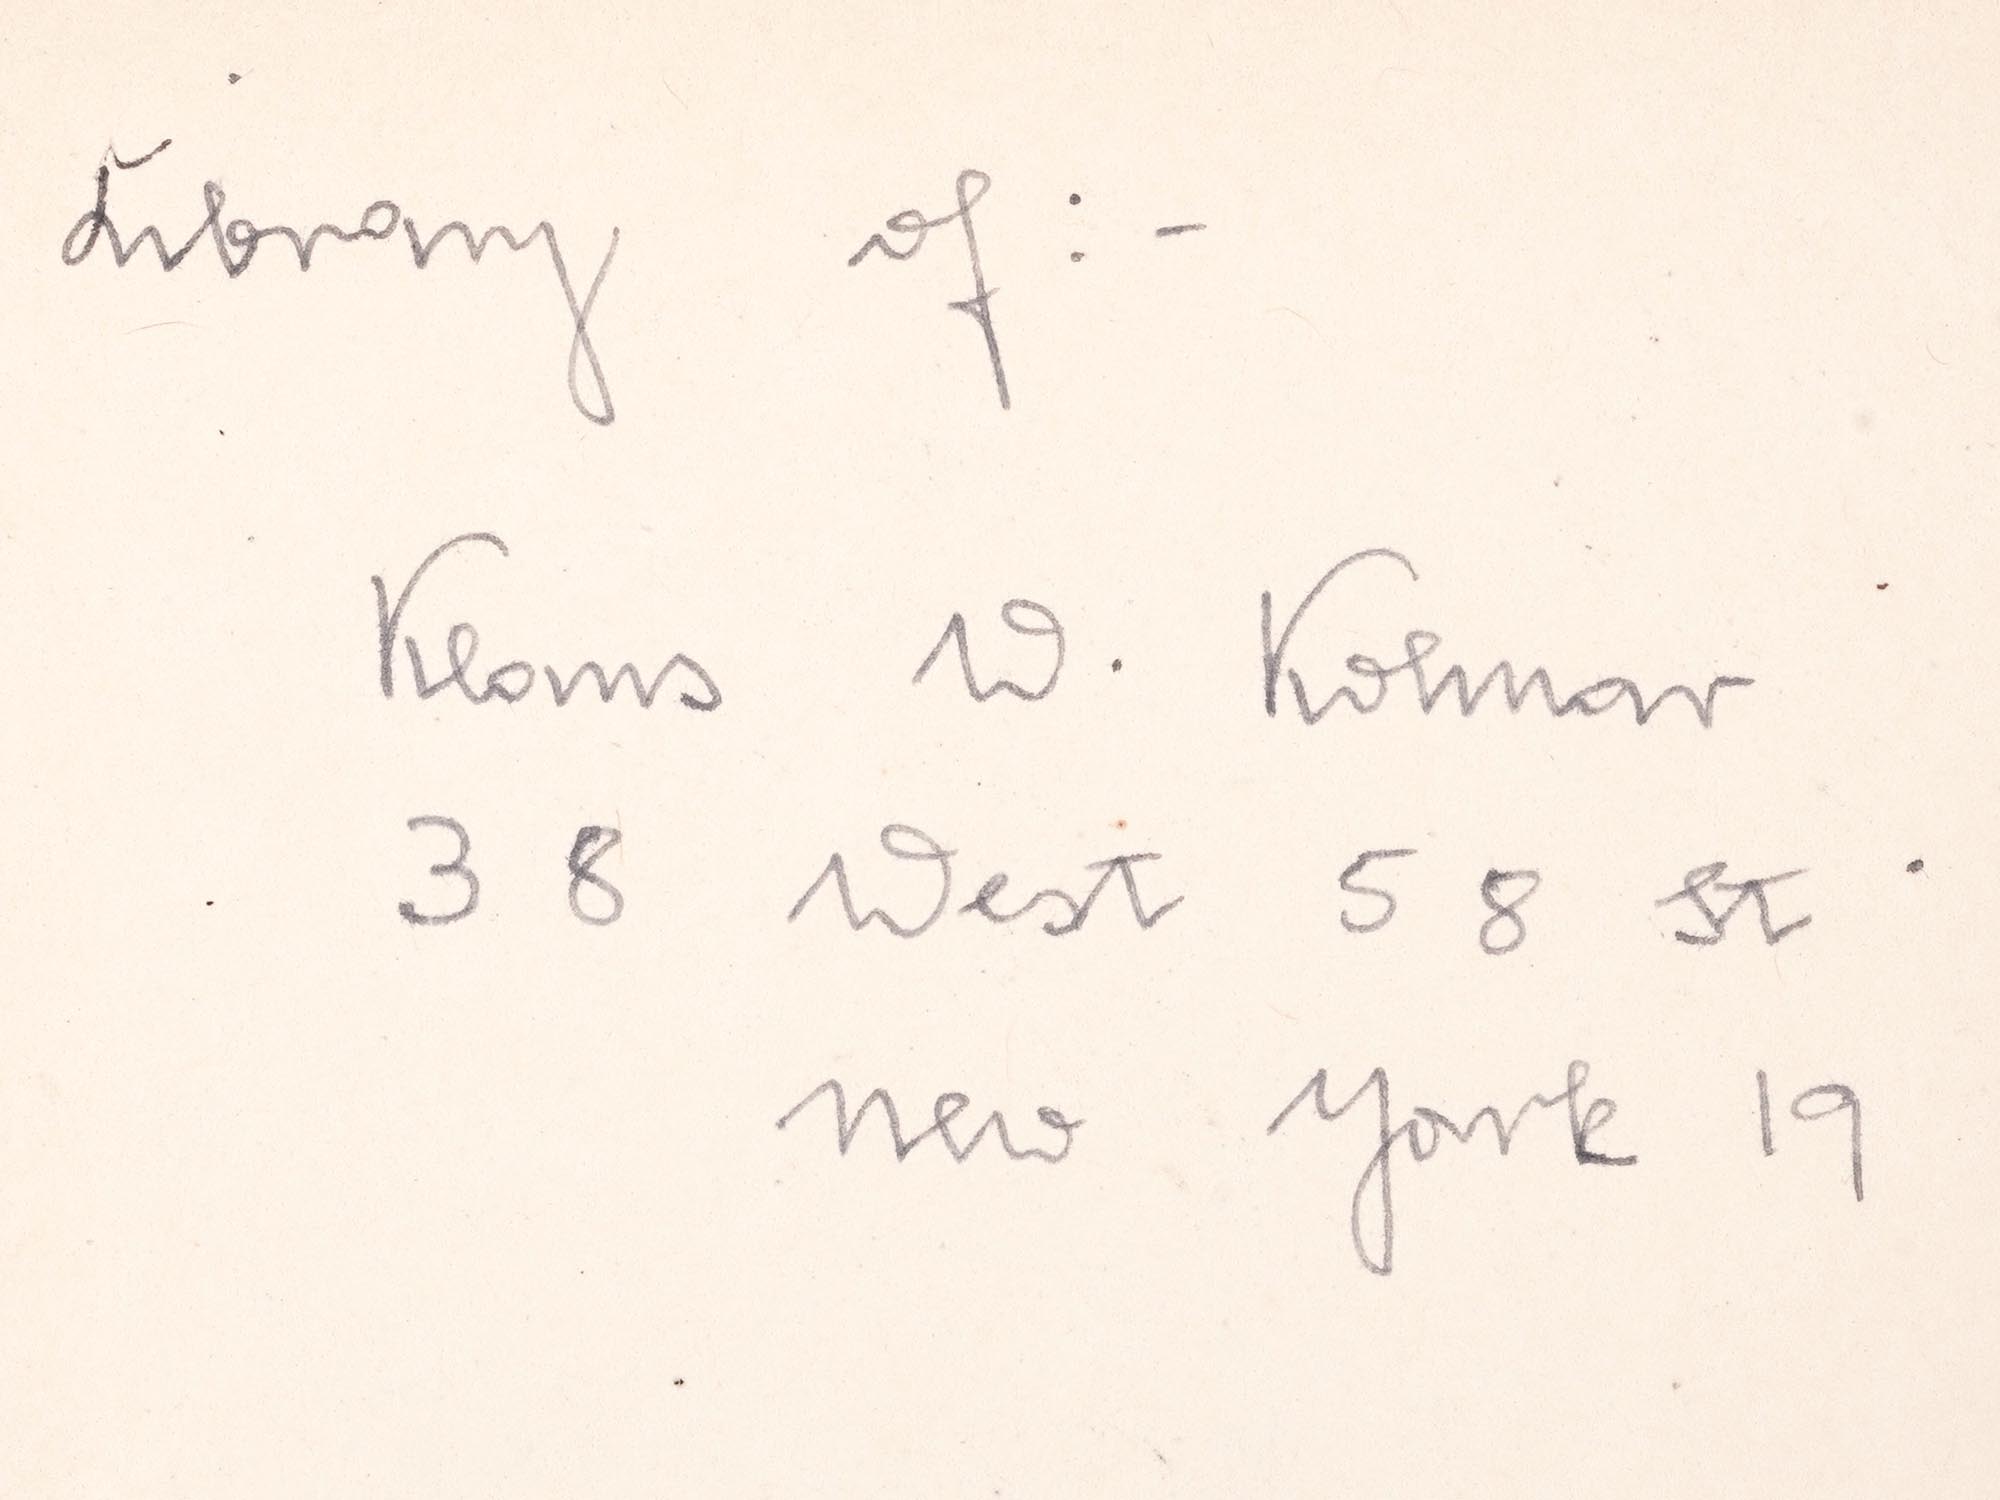 Library of :-
Klaus W. Kolmar
38 West 58 St.
New York 19